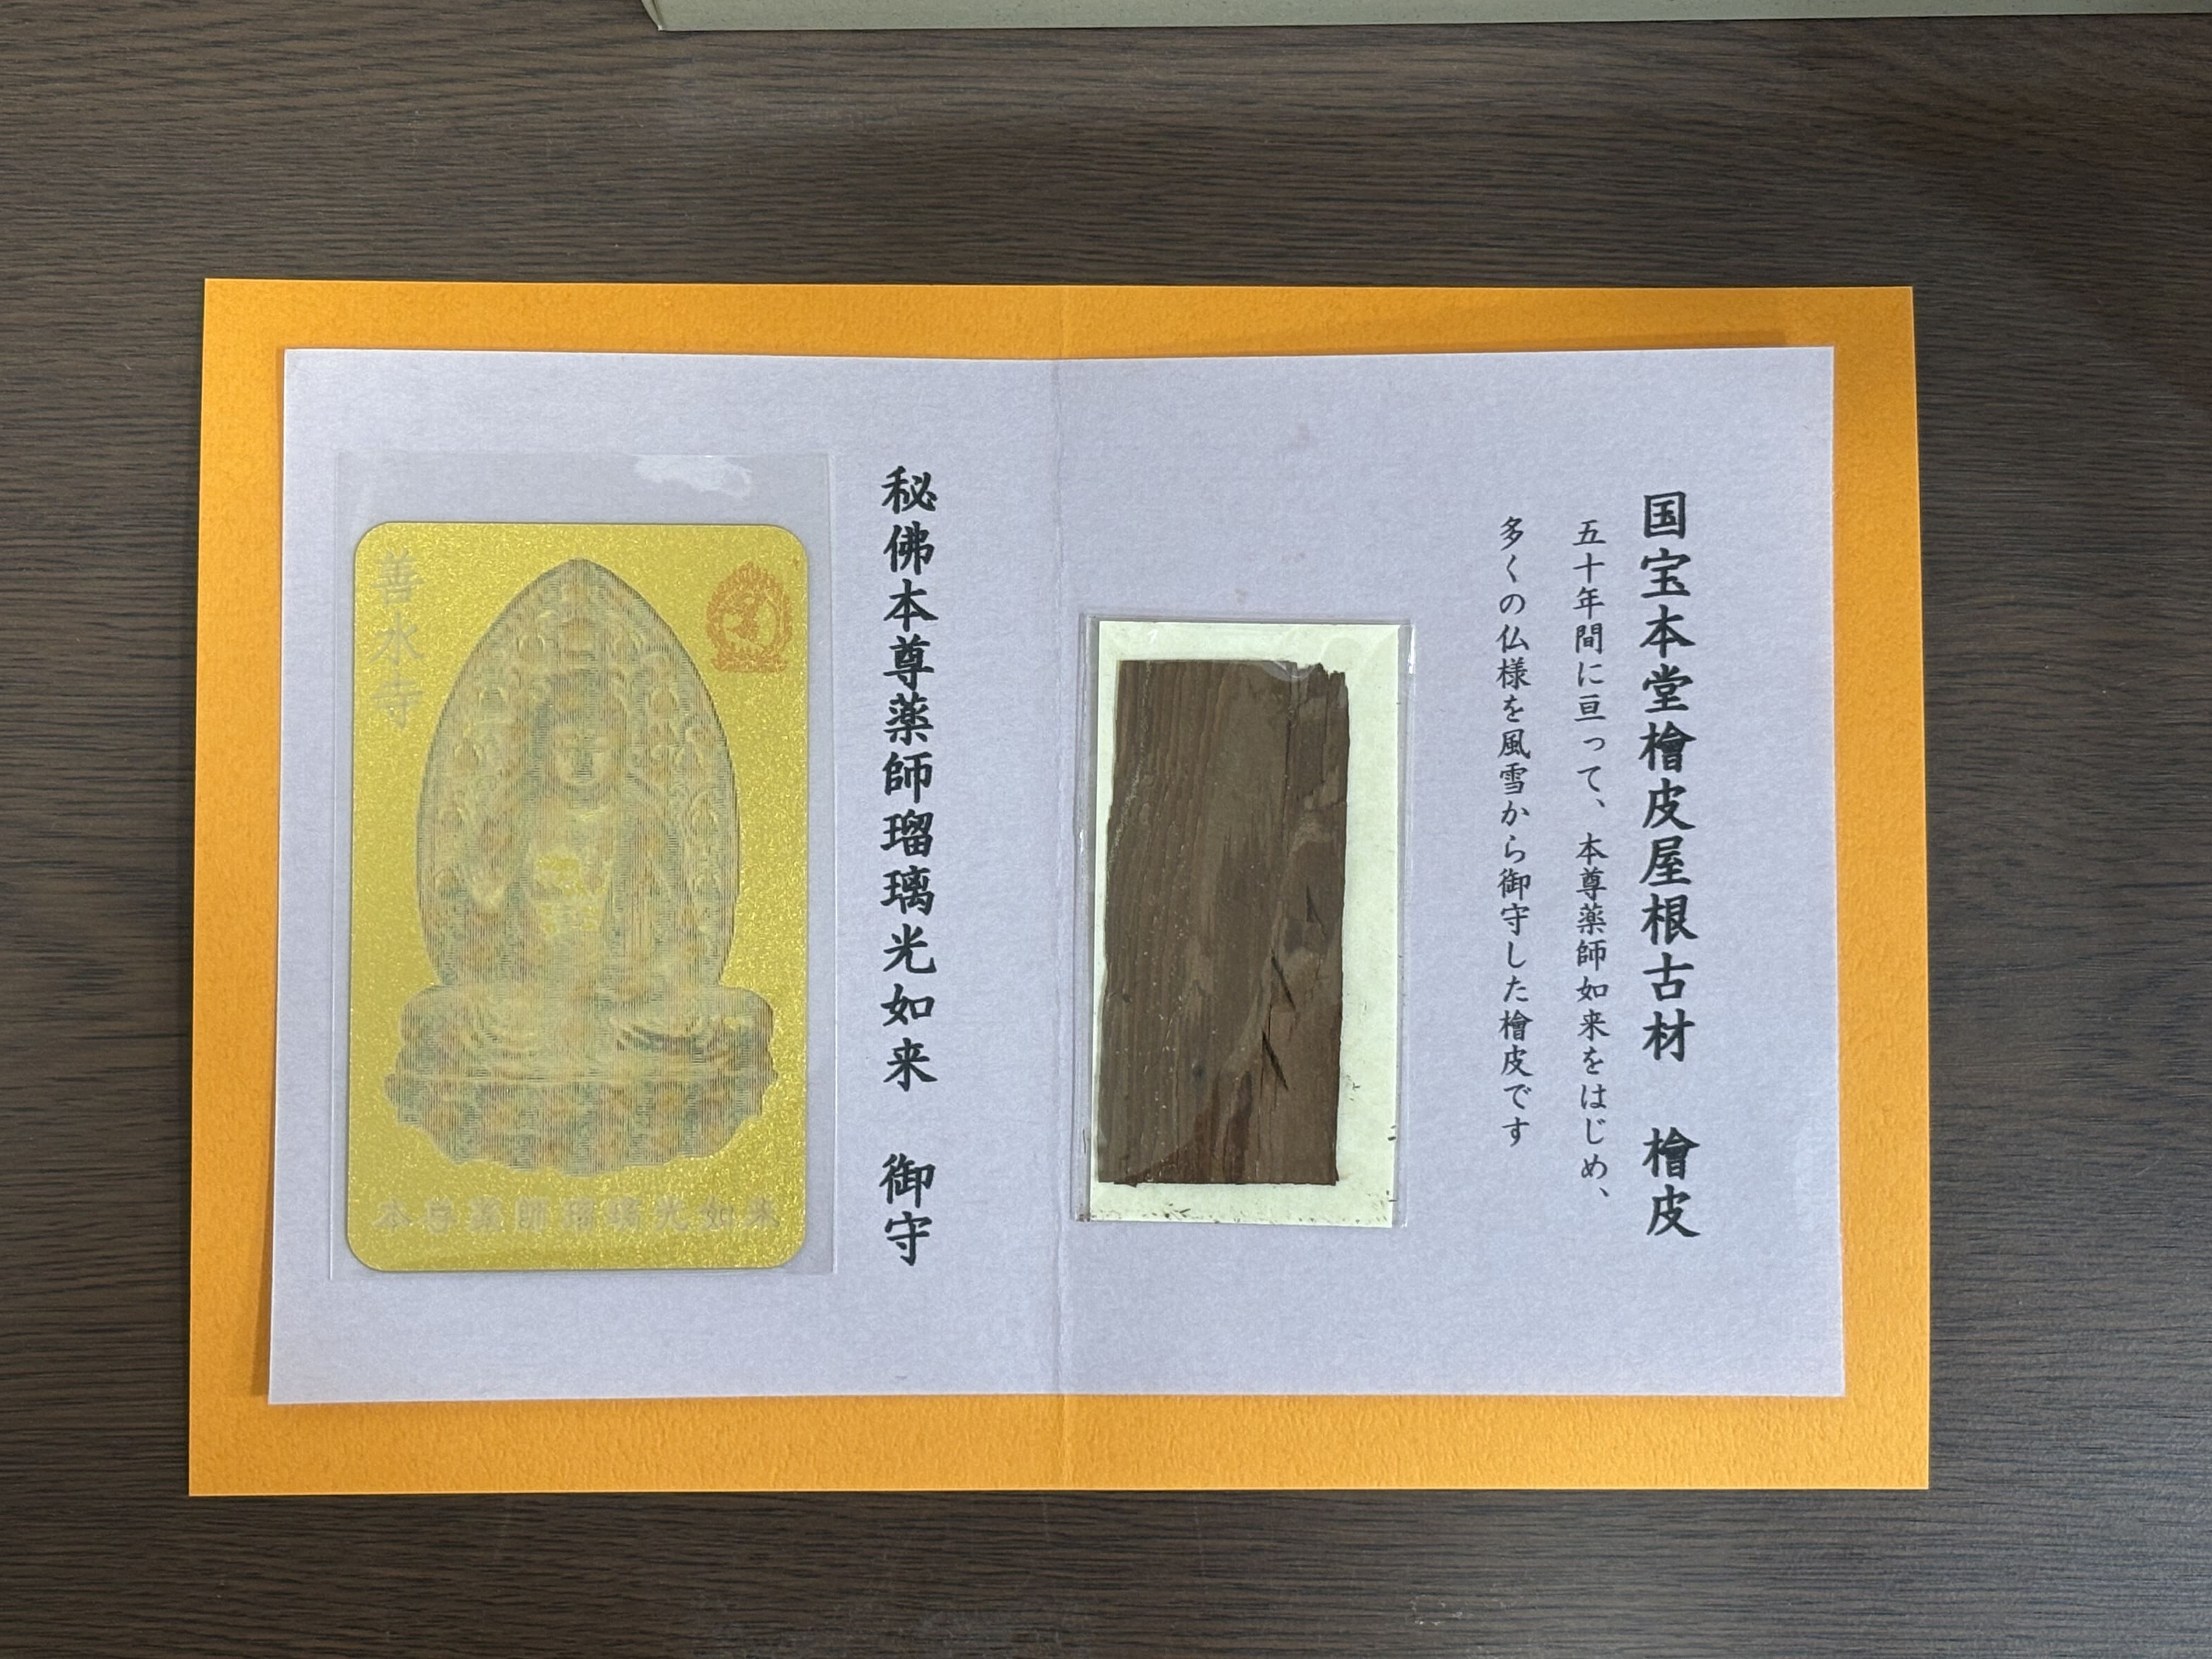 国宝本堂檜皮屋根古材　檜皮
五十年間に亘って、本尊薬師如来をはじめ、
多くの仏様を風雪から御守した檜皮です
秘佛本尊薬師瑠璃光如来　御守
善水寺
本尊薬師瑠璃光如来